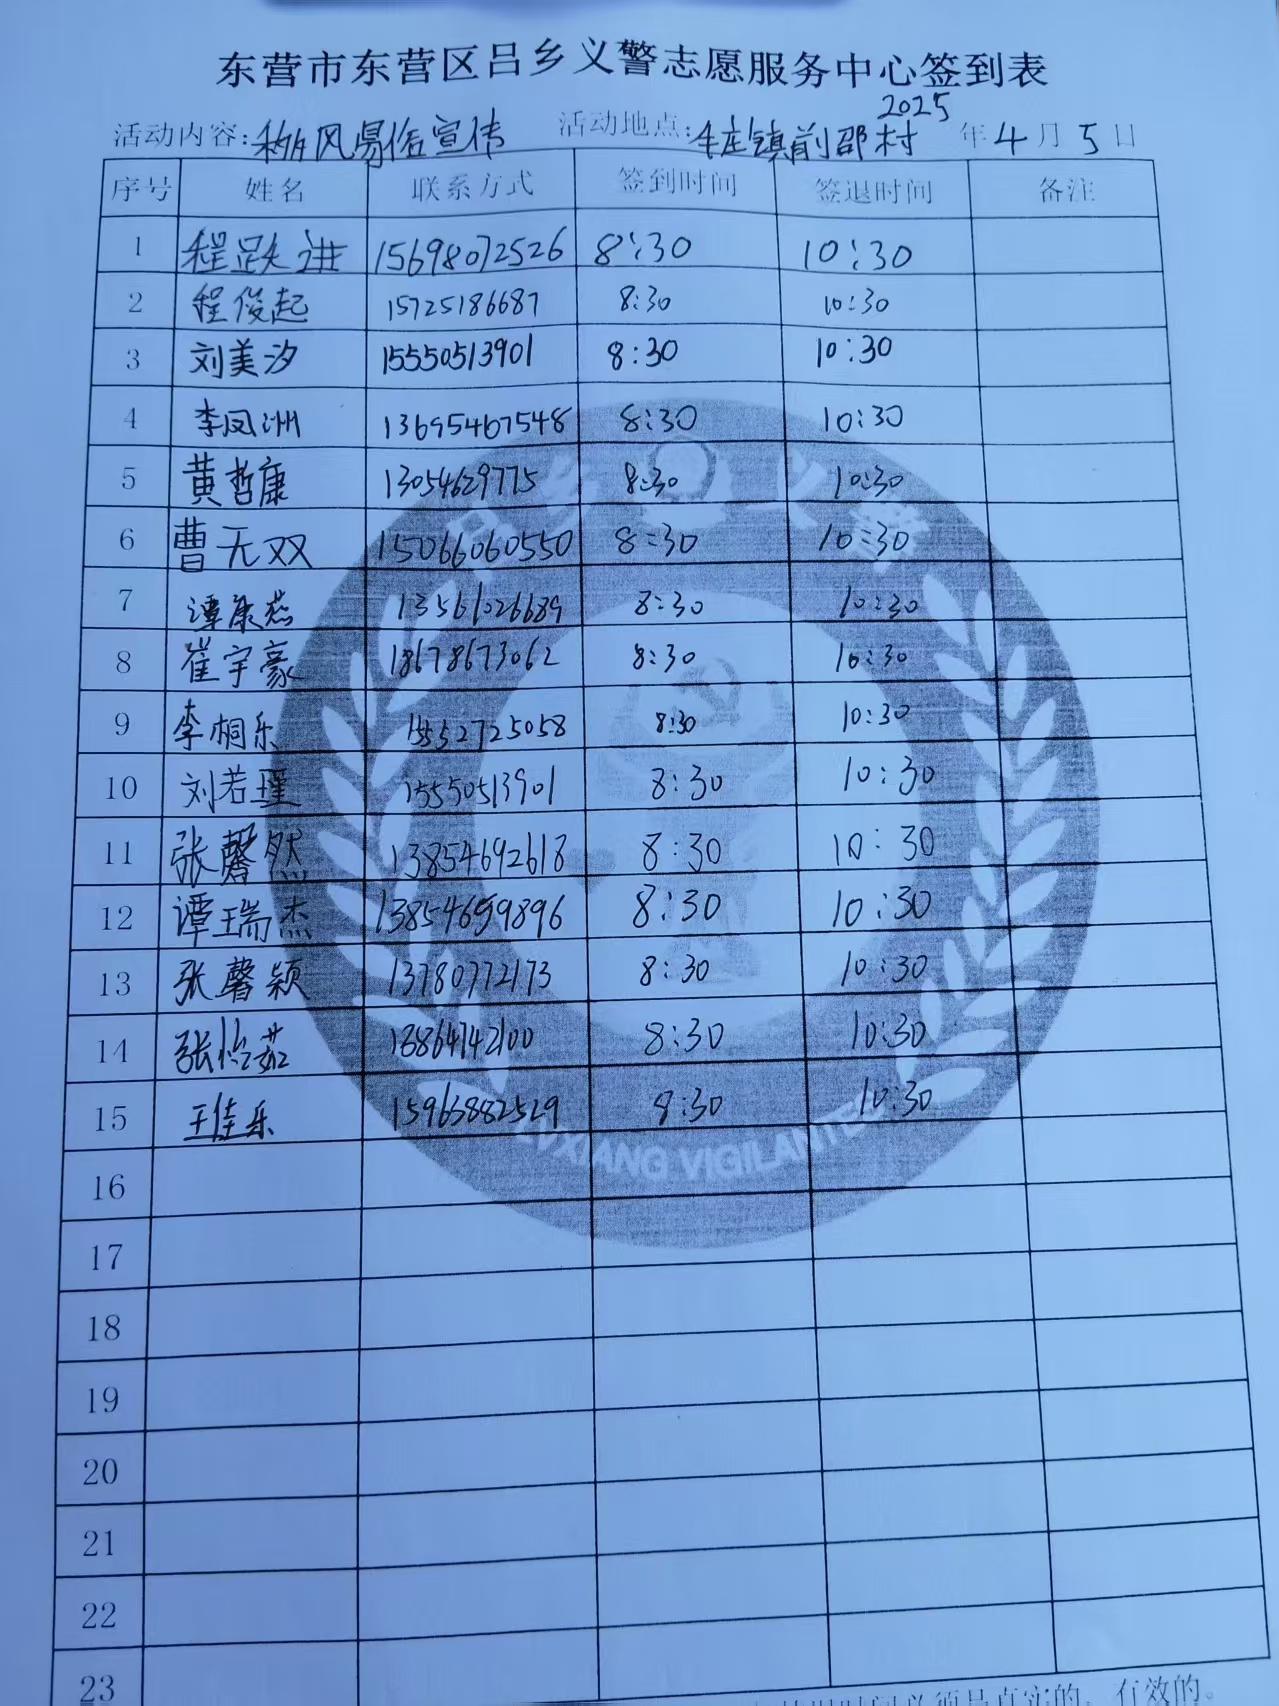 东营市东营区吕乡义警志愿服务中心签到表
活动内容:移风易俗宣传 活动地点:牛庄镇前邵村 2025年4月5日
序号 姓名 联系方式 签到时间 签退时间 备注
1 程跃进 15698072526 8:30 10:30
2 程俊起 15725186687 8:30 10:30
3 刘美汐 15550513901 8:30 10:30
4 李凤洲 13695467548 8:30 10:30
5 黄哲康 13054629775 8:30 10:30
6 曹无双 15066060550 8:30 10:30
7 谭康燕 13561026689 8:30 10:30
8 崔宇豪 18678673062 8:30 10:30
9 李桐乐 15552725058 8:30 10:30
10 刘若瑾 15550513901 8:30 10:30
11 张馨然 13854692618 8:30 10:30
12 谭瑞杰 13854659896 8:30 10:30
13 张馨颖 13780772173 8:30 10:30
14 张怡茹 13864742100 8:30 10:30
15 王佳乐 15963882529 8:30 10:30
LVXIANG VIGILANTE
16
17
18
19
20
21
22
23
真实的，有效的。